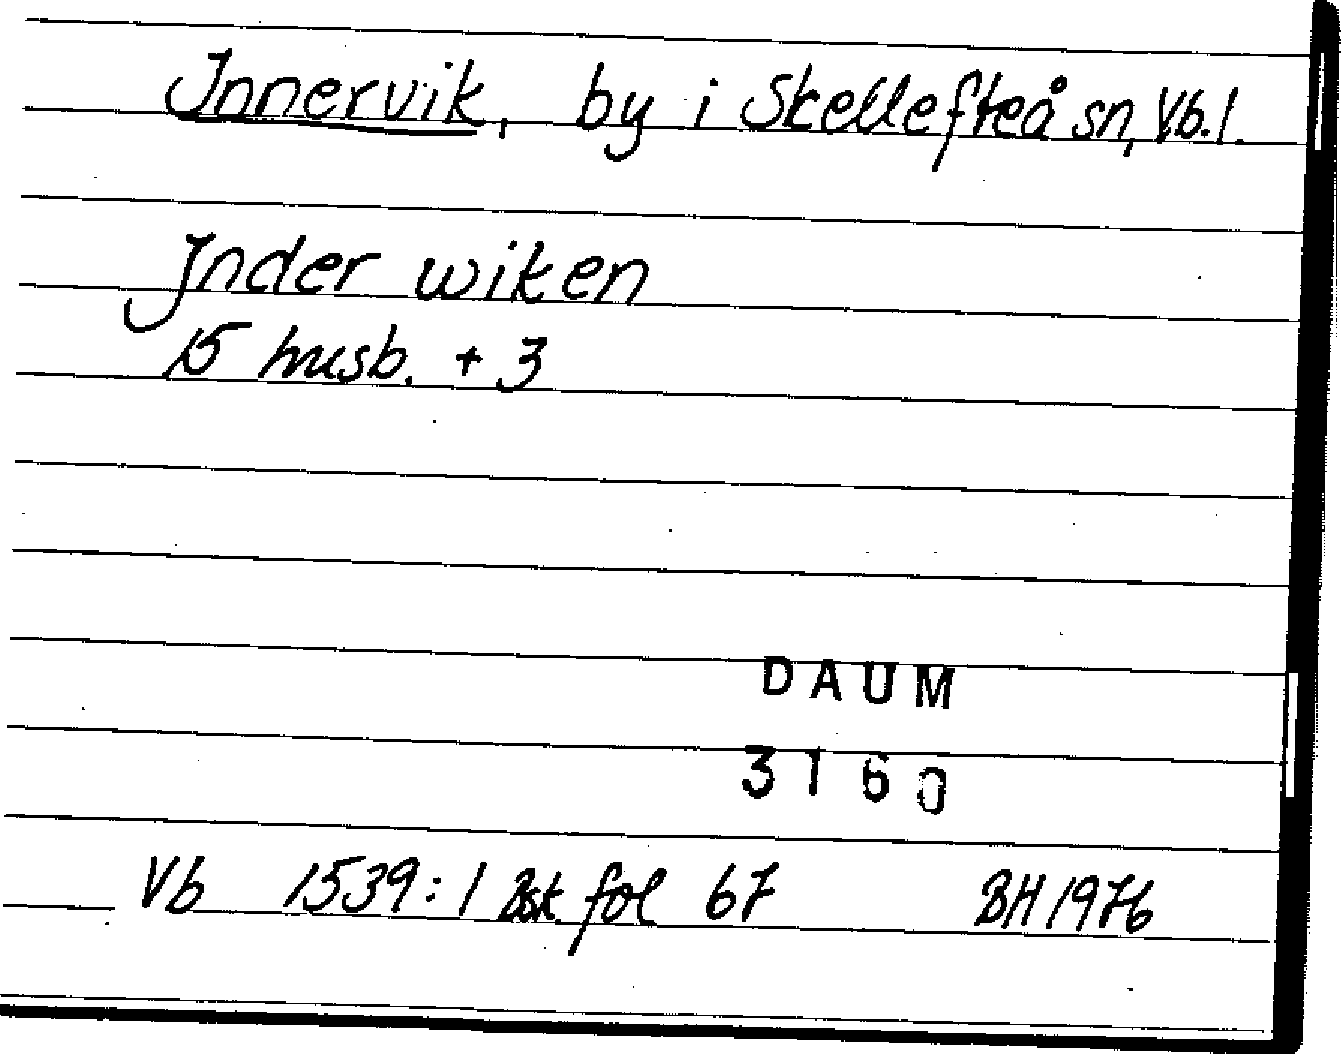 Innervik, by i Skellefteå sn, Vb.l.
Jnder wiken
15 husb. + 3
DAUM
3160
Vb 1539:1 Bst. fol 67 BH 1976